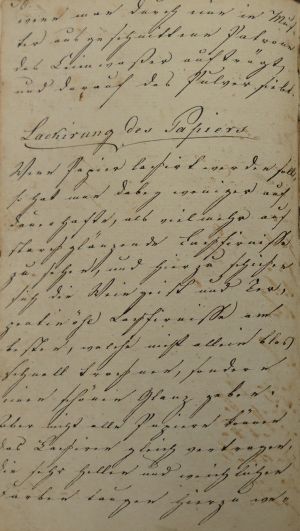 wenn man durch eine in Mus-
ter ausgeschnittene Patrone
das Leimwasser aufträgt,
und darauf das Pulver siebt.
Lackirung des Papiers
Wenn Papier lackirt werden soll,
so hat man dabey weniger auf
dauerhafte, als vielmehr auf
stark glänzende Lackfirnisse
zu sehen, und hierzu schicken
sich die Weingeist und Ter-
pentinöhl Lackfirnisse am
besten, welche nicht allein blos
schnell trocknen, sondern
einen schönen Glanz geben.
Aber nicht alle Papiere können
das Lackiren gleich vertragen,
die sehr hellen und
Farben taugen hierzu we-